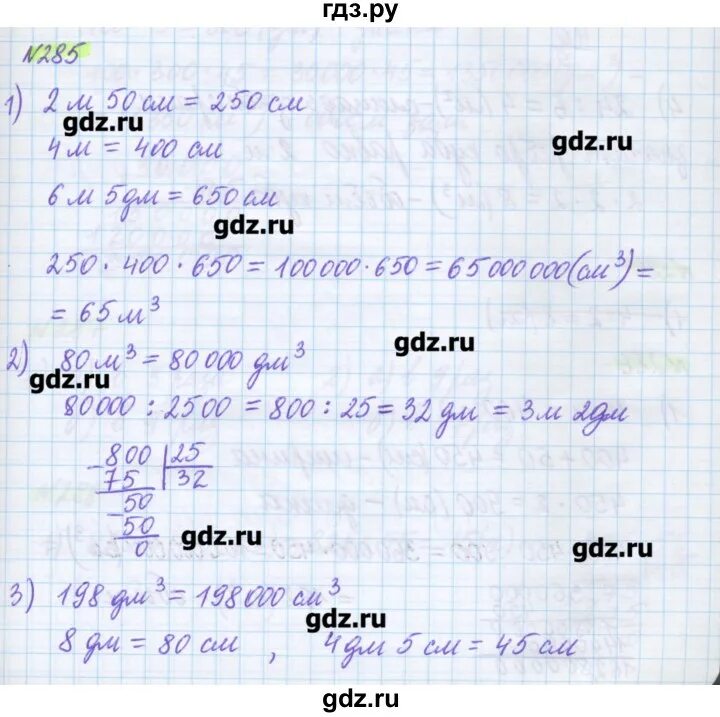 гдз.ру
№285
1) 2 м 50 см = 250 см
gdz.ru
4 м = 400 см
gdz.ru
6 м 5 дм = 650 см
gdz.ru
250 · 400 · 650 = 100 000 · 650 = 65 000 000 (см³) =
= 65 м³
gdz.ru
2) 80 м³ = 80 000 дм³
gdz.ru
80 000 : 2500 = 800 : 25 = 32 дм = 3 м 2 дм
800 25
75 32
50
50
0
gdz.ru
gdz.ru
3) 198 дм³ = 198 000 см³
gdz.ru
8 дм = 80 см , 4 дм 5 см = 45 см
gdz.ru